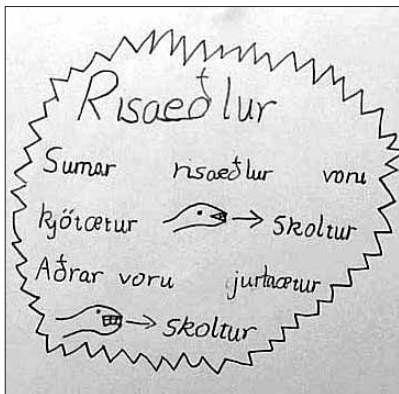 Risaeðlur
Sumar risaeðlur voru
kjötætur → skoltur
Aðrar voru jurtaætur
→ skoltur